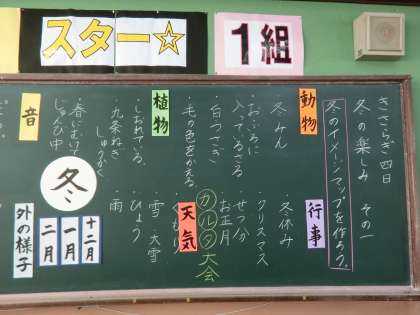 スター☆
1組
きさらぎ四日
冬の楽しみ その一
冬のイメージマップを作ろう。
動物
冬みん
・おふろに
入っているさる
・白うさぎ
・毛の色をかえる
行事
・冬休み
・クリスマス
・せつ分
・お正月
カルタ大会
植物
・しおれている。
・九条ねぎ
しゅうかく
・春にむいて
じゅんび中
天気
くもり
雪 大雪
・ひょう
・雨
音
冬
外の様子
十二月
一月
二月